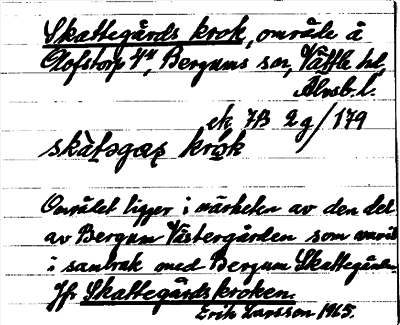 Skattegårds krok, område å
Olofstorp 4¹¹, Bergums sn, Vättle hd,
Älvsb. l.
ek. 7B 2g/179
skàt̯əgaʂ krok
Området ligger i närheten av den del
av Bergum Västergården som varit
i sambruk med Bergum Skattegården.
Jfr Skattegårdskroken.
Erik Larsson 1965.